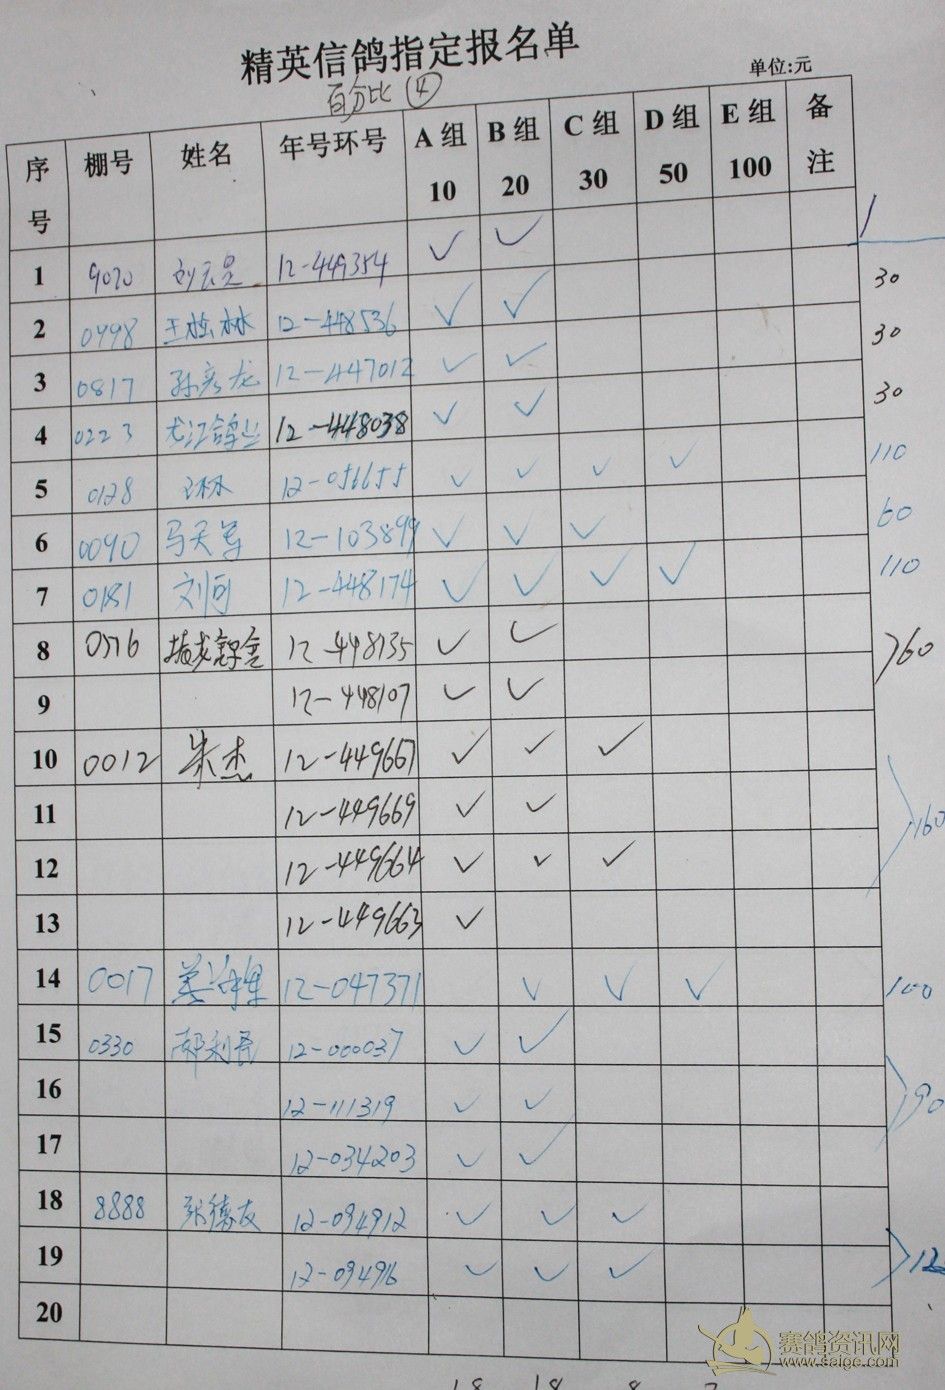 精英信鸽指定报名单
百分比 ④
单位:元
序号 棚号 姓名 年号环号 A组 10 B组 20 C组 30 D组 50 E组 100 备注
1 9020 12-449354 ✓ ✓ 30
2 0998 12-448536 ✓ ✓ 30
3 0817 孙彦龙 12-447012 ✓ ✓ 30
4 0223 12-448038 ✓ ✓
5 0128 12-051655 ✓ ✓ ✓ ✓ 110
6 0090 马天军 12-103899 ✓ ✓ ✓ 60
7 0181 刘河 12-448174 ✓ ✓ ✓ ✓ 110
8 0576 12-448135 ✓ ✓ 60
9 12-448107 ✓ ✓
10 0012 朱杰 12-449667 ✓ ✓ ✓
11 12-449669 ✓ ✓ 160
12 12-449664 ✓ ✓ ✓
13 12-449663 ✓
14 0017 12-047371 ✓ ✓ ✓ 100
15 0330 郝利民 12-000037 ✓ ✓
16 12-111319 ✓ ✓ 90
17 12-034203 ✓ ✓
18 8888 张德友 12-094912 ✓ ✓ ✓
19 12-094916 ✓ ✓ ✓ 12
20
赛鸽资讯网
www.saige.com
18 18 8